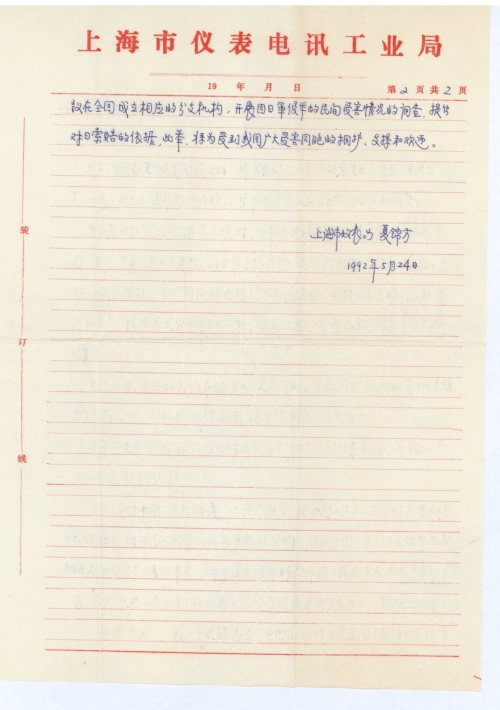 上海市仪表电讯工业局
19 年 月 日 第2页共2页
议在全国成立相应的分支机构，开展因日军侵华的民间受害情况的调查，提出
对日索赔的依据，此举，将为受到我国广大受害同胞的拥护、支援和欢迎。
上海市仪表局 夏锦方
1992年5月24日
装
订
线